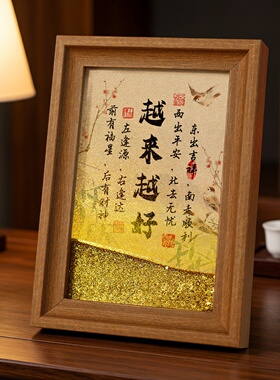 东出吉祥·南走顺利
西出平安·北去无忧
越来越好
左逢源·右逢达
前有福星·后有财神